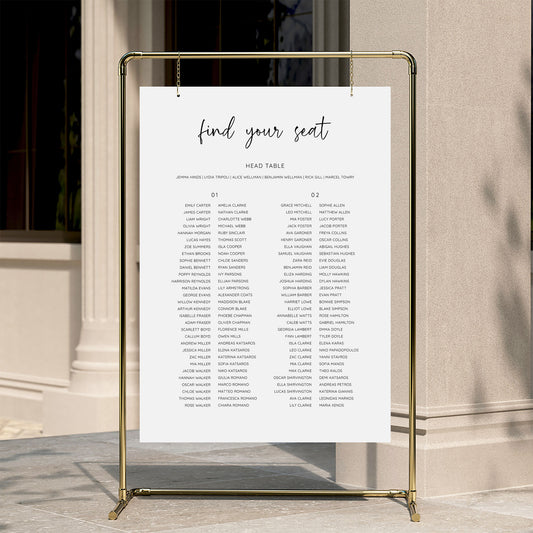 find your seat
HEAD TABLE
JEMMA HINZE | LYDIA TRIPOLI | ALICE WELLMAN | BENJAMIN WELLMAN | RICK GILL | MARCEL TOWRY
01 02
EMILY CARTER AMELIA CLARKE GRACE MITCHELL SOPHIE ALLEN
JAMES CARTER NATHAN CLARKE LEO MITCHELL MATTHEW ALLEN
LIAM WRIGHT CHARLOTTE WEBB MIA FOSTER LUCY PORTER
OLIVIA WRIGHT MICHAEL WEBB JACK FOSTER JACOB PORTER
HANNAH MORGAN RUBY SINCLAIR AVA GARDNER FREYA COLLINS
LUCAS HAYES THOMAS SCOTT HENRY GARDNER OSCAR COLLINS
ZOE SUMMERS ISLA COOPER ELLA VAUGHAN ABIGAIL HUGHES
ETHAN BROOKS NOAH COOPER SAMUEL VAUGHAN SEBASTIAN HUGHES
SOPHIE BENNETT CHLOE SANDERS ZARA REID EVIE DOUGLAS
DANIEL BENNETT RYAN SANDERS BENJAMIN REID LIAM DOUGLAS
POPPY REYNOLDS IVY PARSONS ELIZA HARDING MOLLY HAWKINS
HARRISON REYNOLDS ELIJAH PARSONS JOSHUA HARDING DYLAN HAWKINS
MATILDA EVANS LILY ARMSTRONG SOPHIA BARBER JESSICA PRATT
GEORGE EVANS ALEXANDER COATS WILLIAM BARBER EVAN PRATT
WILLOW KENNEDY MADDISON BLAKE HARRIET LOWE BONNIE SIMPSON
ARTHUR KENNEDY CONNOR BLAKE ELLIOT LOWE BLAKE SIMPSON
ISABELLE FRASER PHOEBE CHAPMAN ANNABELLE WATTS ROSE HAMILTON
ADAM FRASER OLIVER CHAPMAN CALEB WATTS GABRIEL HAMILTON
SCARLETT BOYD FLORENCE MILLS GEORGIA LAMBERT EMMA DOYLE
CALLUM BOYD OWEN MILLS FINN LAMBERT TYLER DOYLE
ANDREW MILLER ANDREAS KATSAROS ISLA CLARKE ELENA KARAS
JESSICA MILLER ELENA KATSAROS LEO CLARKE NIKO PAPADOPOULOS
ZAC MILLER KATERINA KATSAROS ZAC CLARKE YANNI STAVROS
MIA MILLER SOFIA KATSAROS MIA CLARKE SOFIA MANOS
JACOB WALKER NIKO KATSAROS MAX CLARKE THEO KALOS
HANNAH WALKER GIULIA ROMANO OSCAR SHIRVINGTON DEMI KATSAROS
OSCAR WALKER MARCO ROMANO ELLA SHIRVINGTON ANDREAS PETROS
CHLOE WALKER MATTEO ROMANO LUCAS SHIRVINGTON ELENA PETROS
THOMAS WALKER FRANCESCA ROMANO AVA CLARKE LEONIDAS MARKOS
ROSE WALKER CHIARA ROMANO LILY CLARKE MARIA XENOS